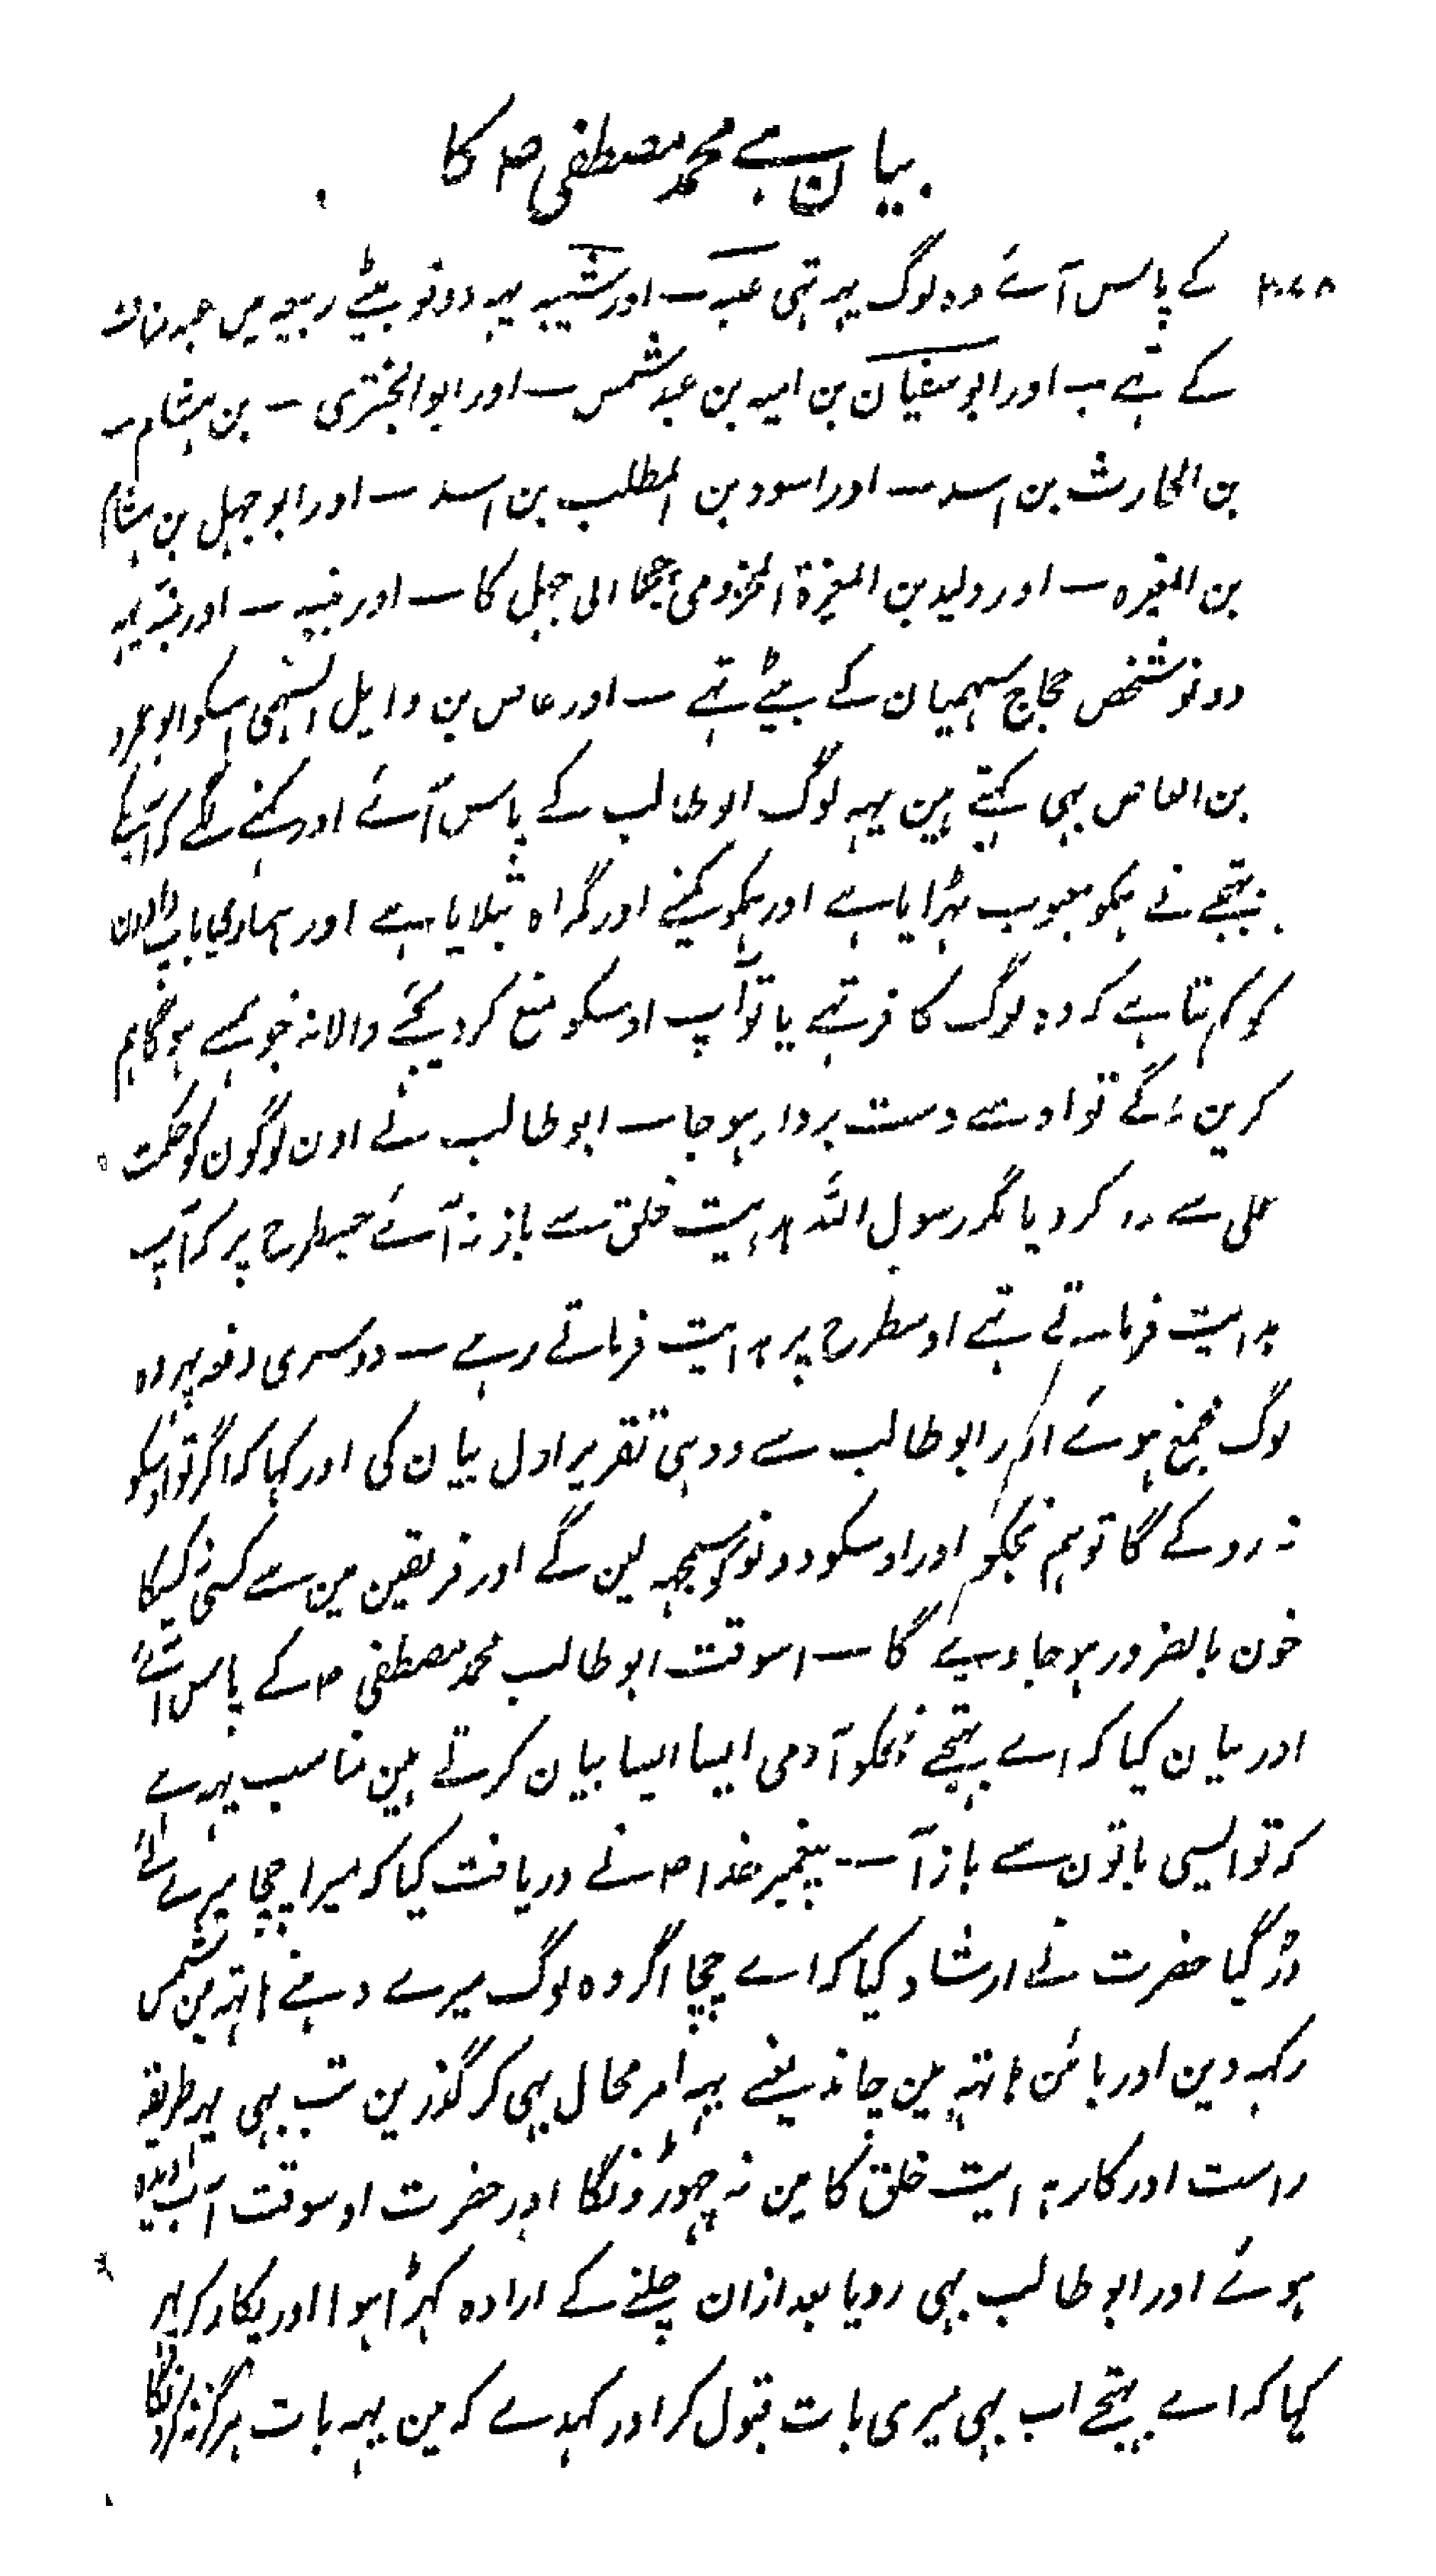 بیان ہے محمد مصطفی ص کا
کے پاس آئے وہ لوگ یہہ تہی عتبہ ۔ اور شیبہ یہہ دونو بیٹے ربیعہ بن عبد مناف
کے تہے ۔ اور ابو سفیان بن امیہ بن عبد شمس ۔ اور ابو البختری ۔ بن ہشام ۔
بن الحارث بن اسد ۔ اور اسود بن المطلب بن اسد ۔ اور ابو جہل بن ہشام
بن المغیرہ ۔ اور ولید بن المغیرۃ المخزومی چچا ابی جہل کا ۔ اور نبیہ ۔ اور منبہ یہہ
دونو شخص حجاج سہمیان کے بیٹے تہے ۔ اور عاص بن وایل السہمی اسکو ابو عمرو
بن العاص بہی کہتے ہین یہہ لوگ ابو طالب کے پاس آئے اور کہنے لگے کہ آپکے
بہتیجے نے ہمکو معیوب ٹہرایا ہے اور ہمکو کمینے اور گمراہ بتلایا ہے اور ہماری باپ دادون
کو کہتا ہے کہ وہ لوگ کافر تہے یا تو آپ اوسکو منع کر دیجئے والا نہ جو ہمسے ہوگا ہم
کرین گے تو اوسے دست بردار ہو جا ۔ ابو طالب نے اون لوگون کو حکمت
عملی سے رد کر دیا مگر رسول اللہ ہدایت خلق سے باز نہ آئے جسطرح پر کہ آپ
ہدایت فرماتے تہے اوسطرح پر ہدایت فرماتے رہے ۔ دوسری دفعہ پہر وہ
لوگ مجمع ہوئے اور ابو طالب سے وہی تقریر اول بیان کی اور کہا کہ اگر تو اوسکو
نہ روکے گا تو ہم تجکو اور اوسکو دونو کو سمجہہ لین گے اور فریقین مین سے کسی نہ کسیکا
خون بالضرور ہو جاویے گا ۔ اسوقت ابو طالب محمد مصطفی ص کے پاس آئے
اور بیان کیا کہ اے بہتیجے تجکو آدمی ایسا ایسا بیان کرتے ہین مناسب یہہ ہے
کہ تو ایسی باتون سے باز آ ۔ پیغمبر خدا ص نے دریافت کیا کہ میرا چچا میرے لئے
ڈر گیا حضرت نے ارشاد کیا کہ اے چچا اگر وہ لوگ میرے دہنے ہاتہہ مین شمس
رکہہ دین اور بائن ہاتہہ مین چاند یعنے یہہ امر محال بہی کر گذرین تب بہی یہہ طریقہ
راست اور کار ہدایت خلق کا مین نہ چہوڑونگا اور حضرت اوسوقت آب دیدہ
ہوئے اور ابو طالب بہی رویا بعد ازان چلنے کے ارادہ کہڑا ہوا اور پکار کر یہہ
کہا کہ اے بہتیجے اب بہی میری بات قبول کر اور کہدے کہ مین یہہ بات ہرگز نہ کرونگا